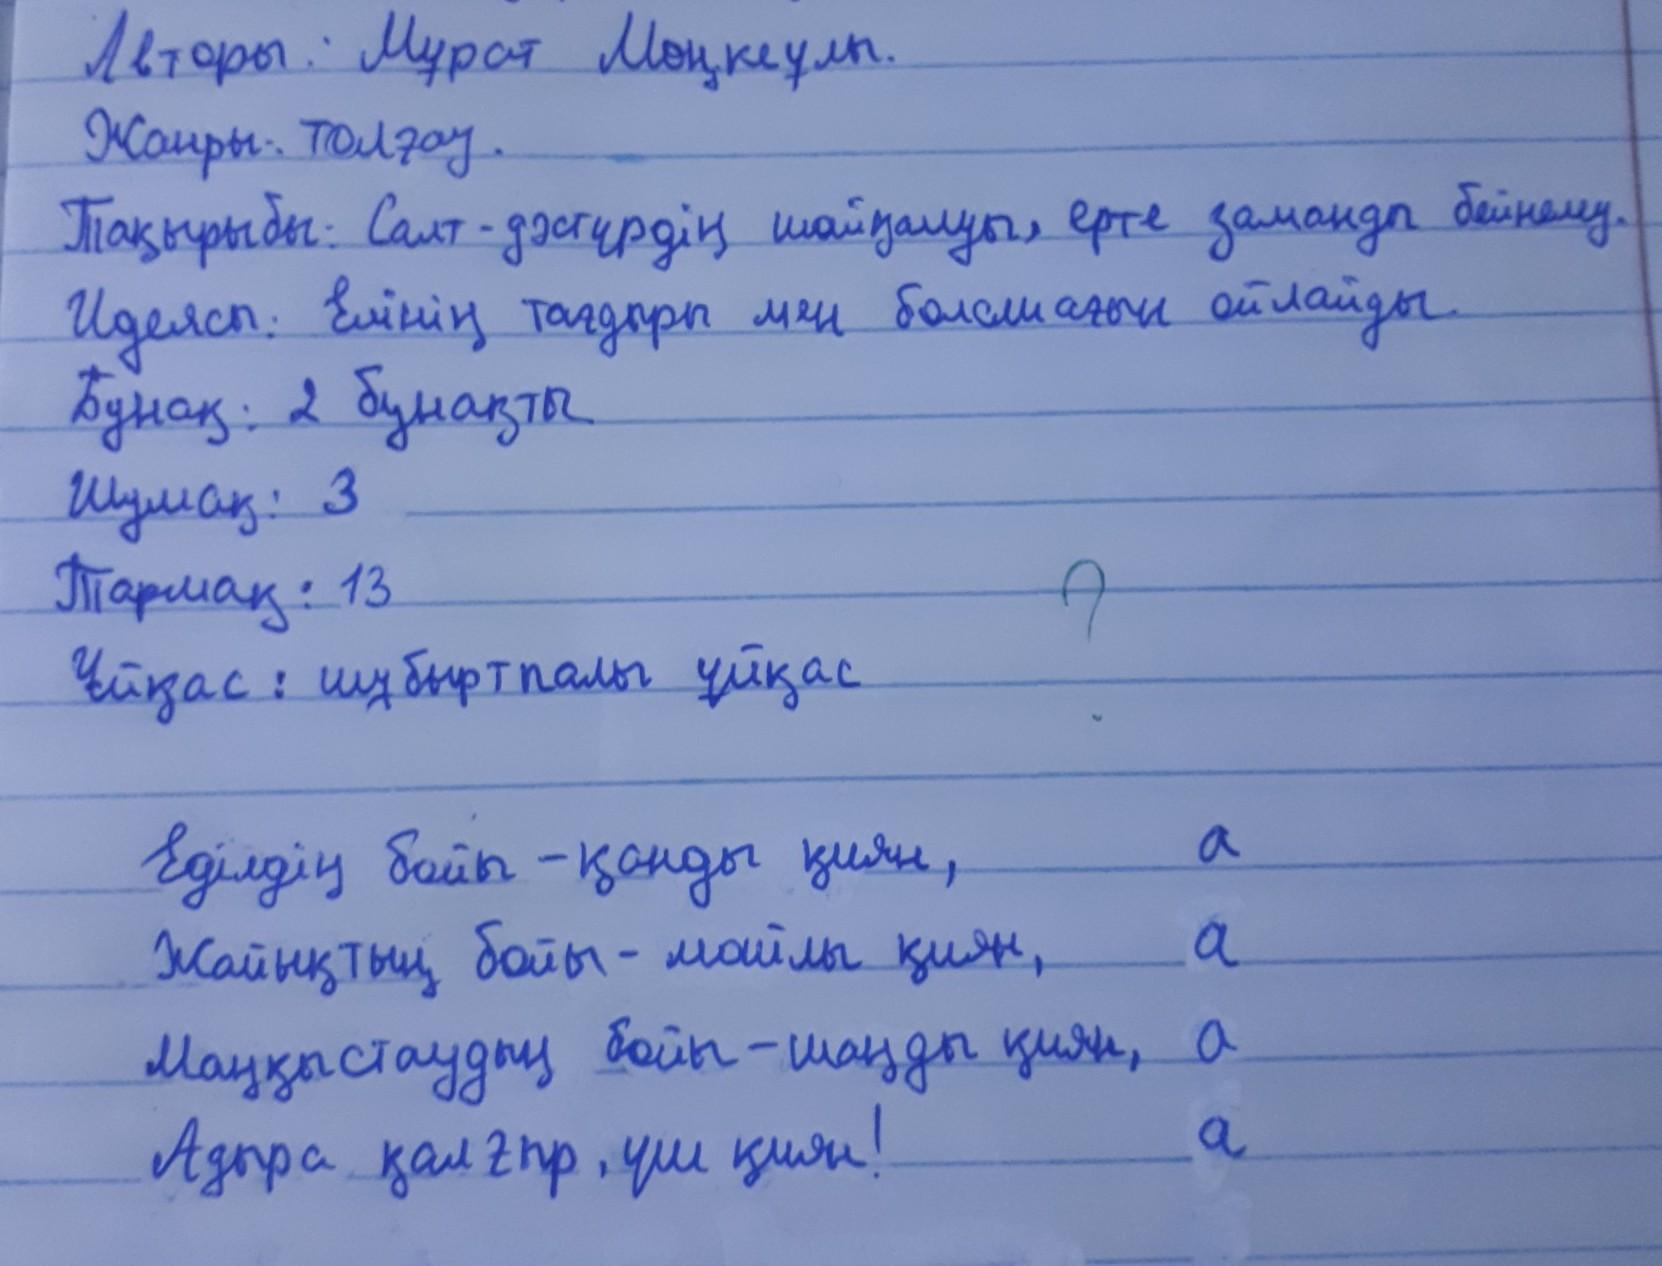 Авторы: Мұрат Мөңкеұлы.
Жанры: толғау.
Тақырыбы: Салт-дәстүрдің шайқалуы, ерте заманды бейнелеу.
Идеясы: Елінің тағдыры мен болашағын ойлайды.
Бунақ: 2 бунақты
Шумақ: 3
Тармақ: 13
?
Ұйқас: шұбыртпалы ұйқас
Еділдің бойы - қанды қиян, а
Жайықтың бойы - майлы қиян, а
Маңқыстаудың бойы - шаңды қиян, а
Адыра қалғыр, үш қиян! а